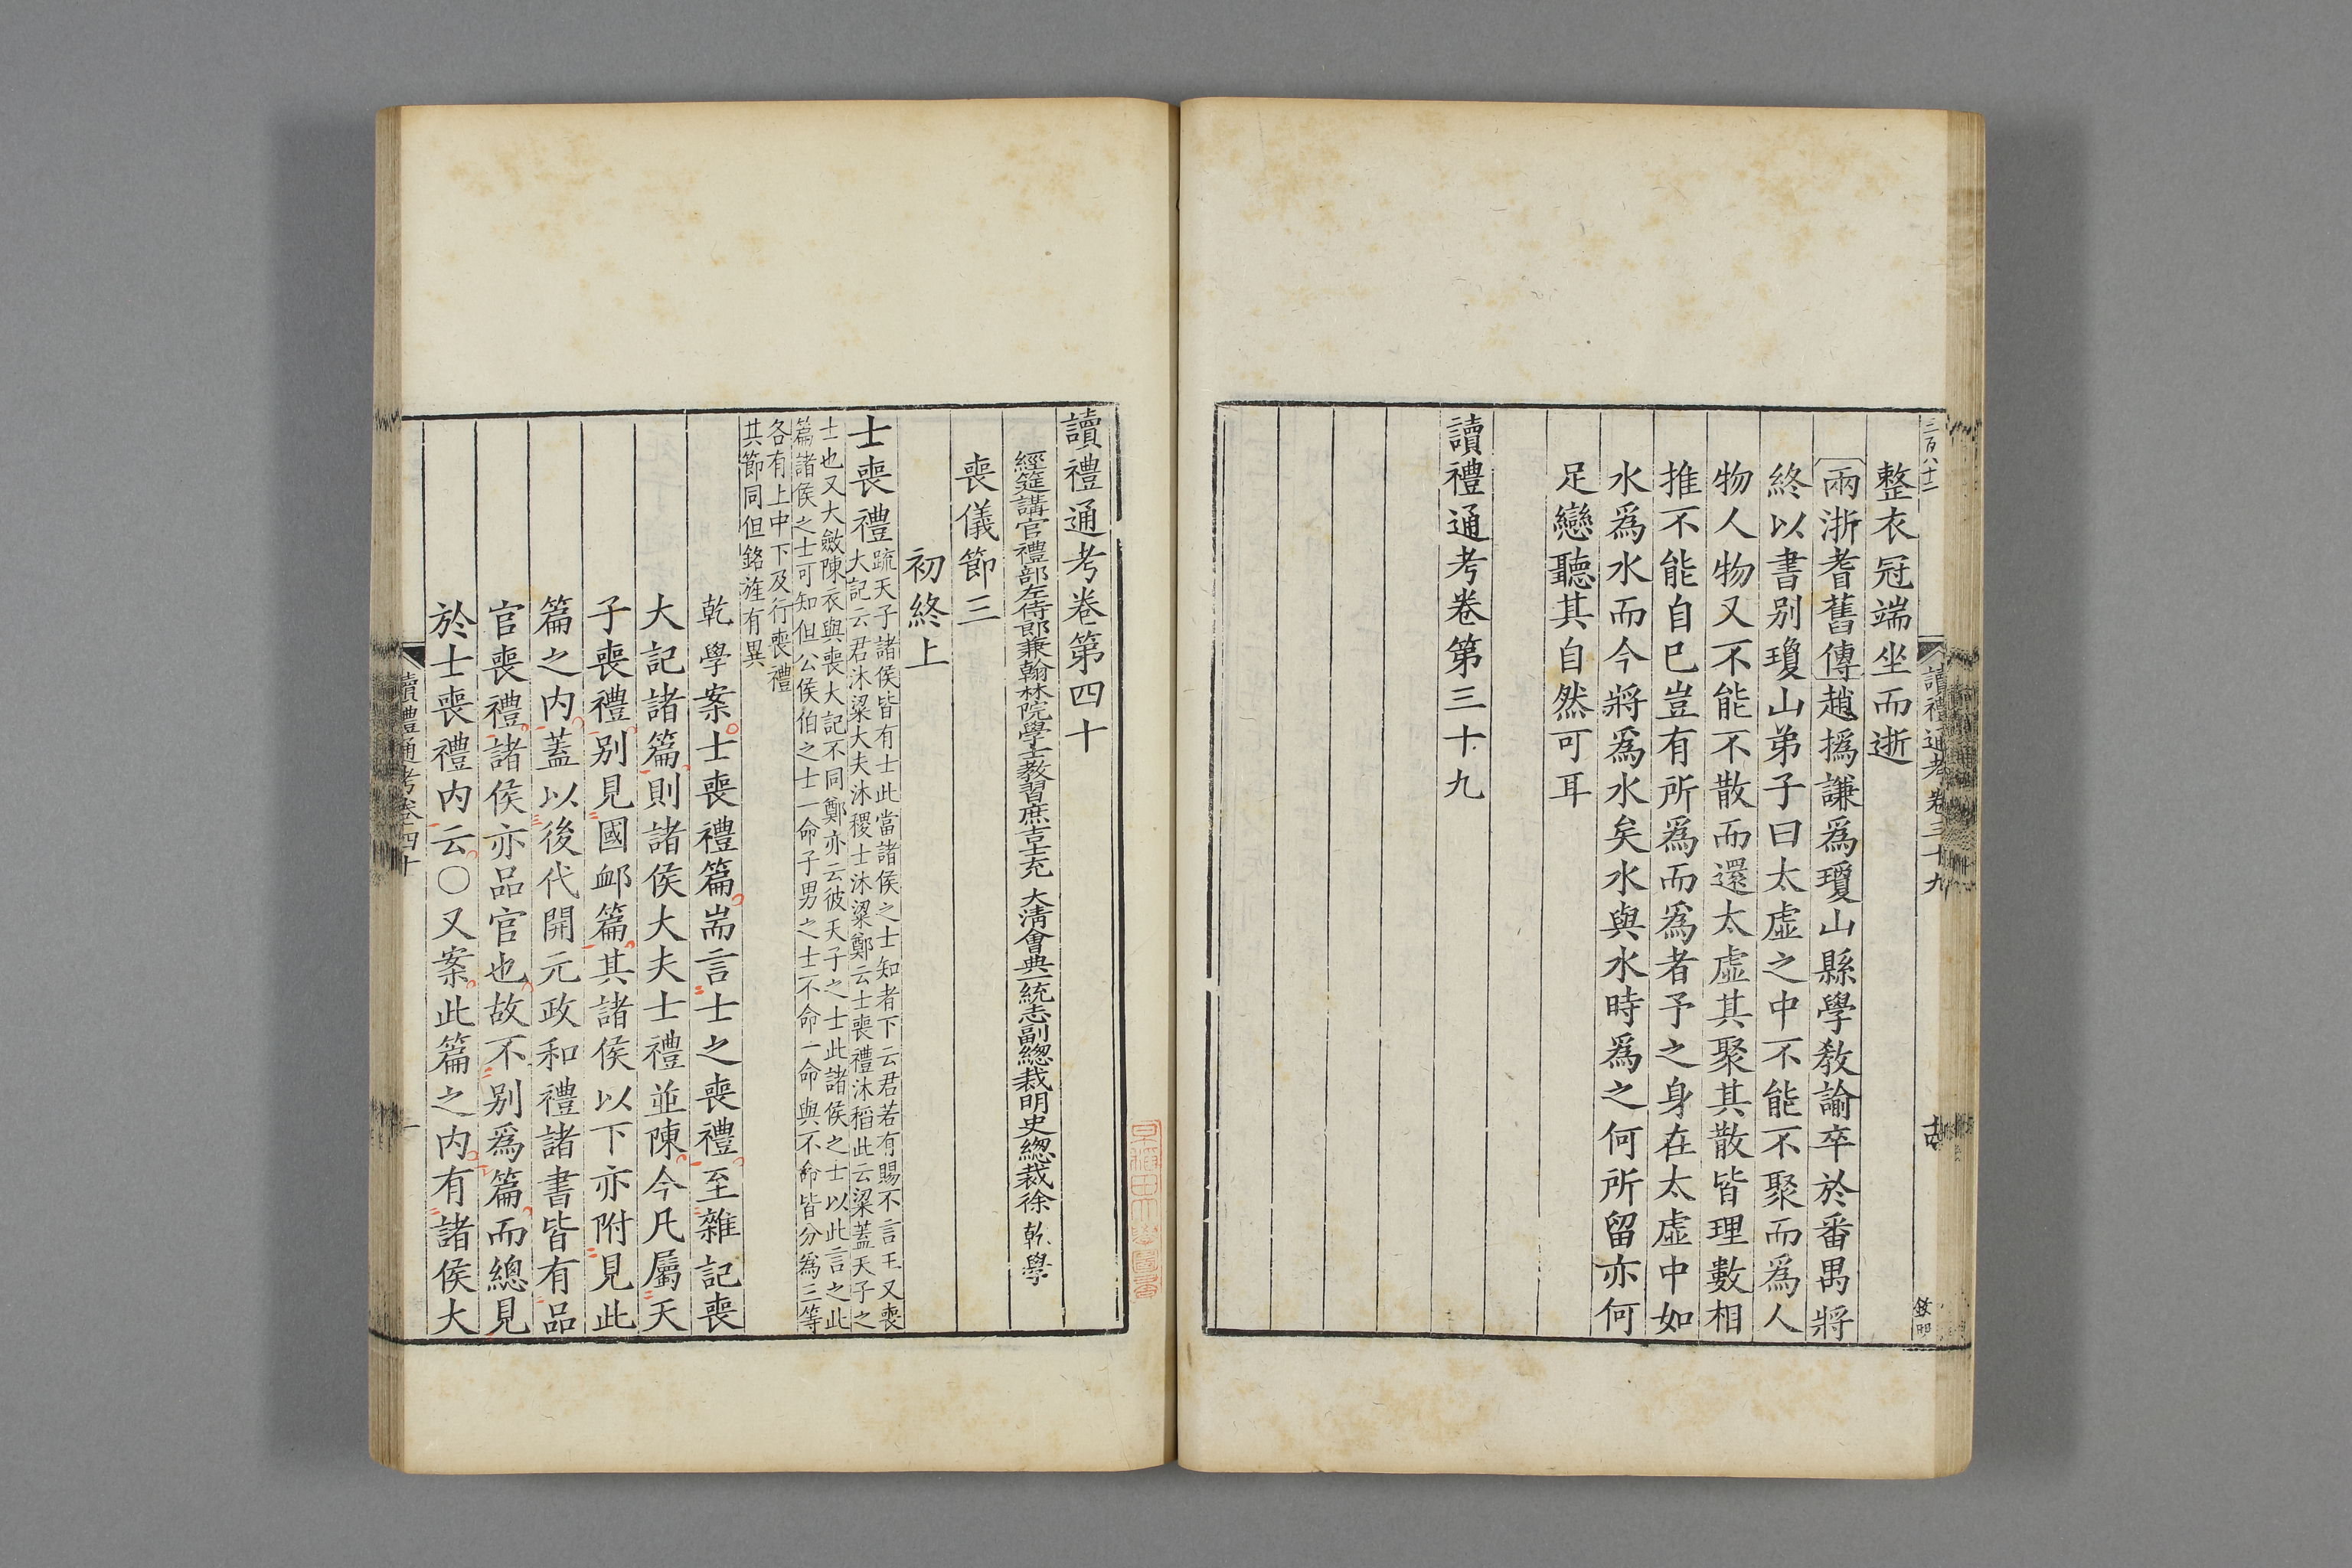 三百八十一
讀禮通考卷三十九
整衣冠端坐而逝
兩浙耆舊傳趙撝謙爲瓊山縣學敎諭卒於番禺將
終以書别瓊山弟子曰太虛之中不能不聚而爲人
物人物又不能不散而還太虛其聚其散皆理數相
推不能自已豈有所爲而爲者予之身在太虛中如
水爲水而今將爲水矣水與水時爲之何所留亦何
足戀聽其自然可耳
讀禮通考卷第三十九
讀禮通考卷第四十
經筵講官禮部左侍郎兼翰林院學士敎習庶吉士充 大清會典一統志副總裁明史總裁徐乾學
喪儀節三
初終上
士喪禮
疏天子諸侯皆有士此當諸侯之士知者下云君若有賜不言王又喪
大記云君沐粱大夫沐稷士沐粱鄭云士喪禮沐稻此云粱蓋天子之
士也又大斂陳衣與喪大記不同鄭亦云彼天子之士此諸侯之士以此言之此
篇諸侯之士可知但公侯伯之士一命子男之士不命一命與不命皆分爲三等
各有上中下及行喪禮
其節同但銘旌有異
乾學案士喪禮篇耑言士之喪禮至雜記喪
大記諸篇則諸侯大夫士禮並陳今凡屬天
子喪禮别見國卹篇其諸侯以下亦附見此
篇之内蓋以後代開元政和禮諸書皆有品
官喪禮諸侯亦品官也故不别爲篇而總見
於士喪禮内云○又案此篇之内有諸侯大
讀禮通考卷四十
一